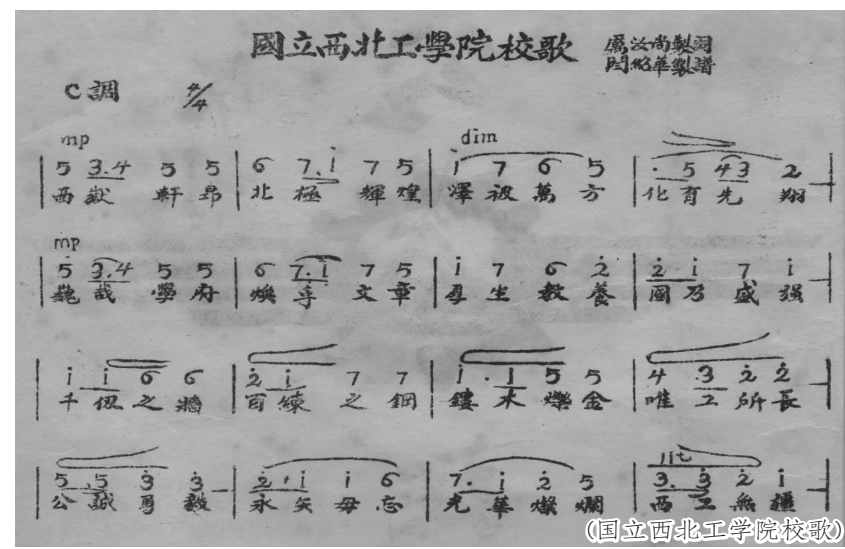 國立西北工學院校歌
厲汝尚製詞
製譜
C調 4/4
mp dim
5 3.4 5 5 | 6 7.i 7 5 | i 7 6 5 | . 5 43 2
西嶽 軒昂 北極 輝煌 澤被萬方 化育先翔
mp
5 3.4 5 5 | 6 7.i 7 5 | i 7 6 2 | 2 i 7 i
巍哉 學府 煥乎 文章 生教養 國乃盛强
i i 6 6 | 2 i 7 7 | i . i 5 5 | 4 .3 2 2
千仭之牆 百練之鋼 鏤木爍金 唯工所長
rit
5 5 3 3 | 2 . i i 6 | 7. i 2 5 | 3. 3 2 i
公誠勇毅 永矢毋忘 光華燦爛 西工無疆
(国立西北工学院校歌)